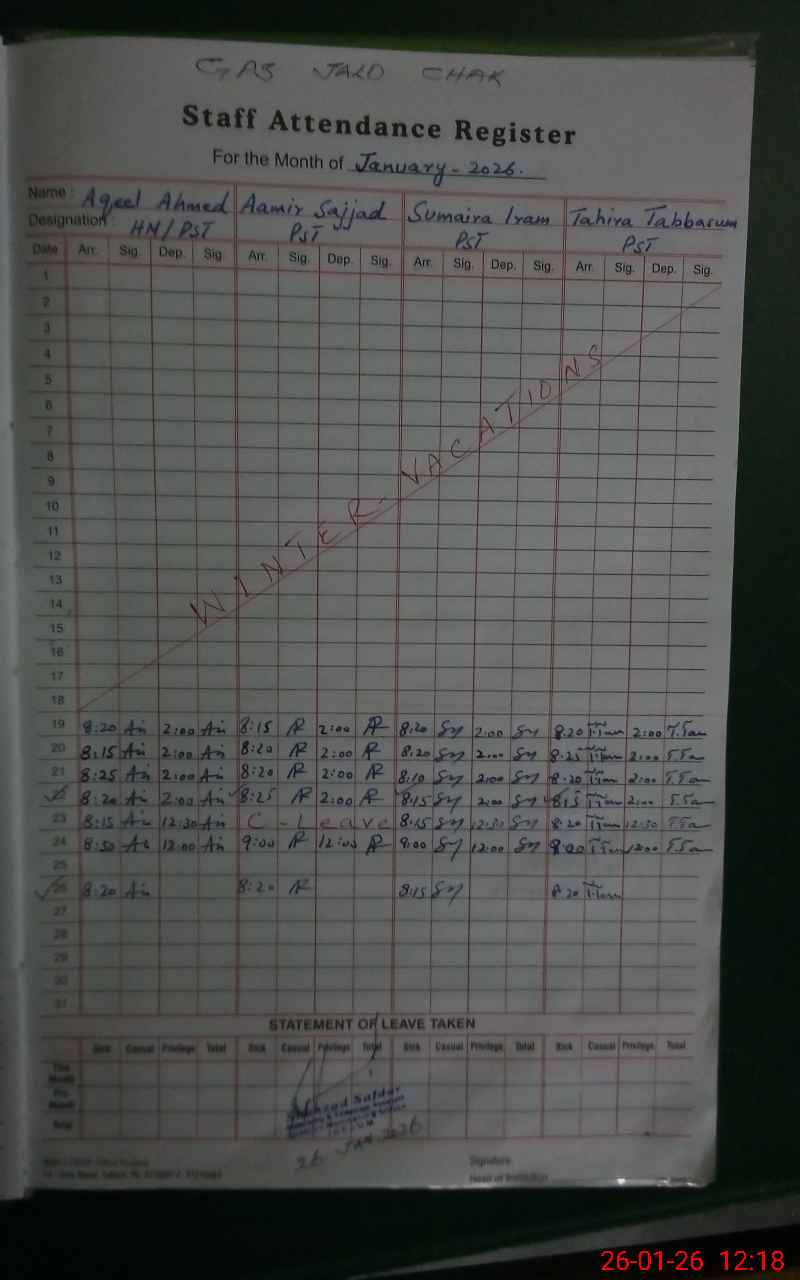 GPS JALO CHAK
Staff Attendance Register
For the Month of January - 2026.
Name : Aqeel Ahmed Aamir Sajjad Sumaira Iram Tahira Tabbasum
Designation : HN/PST PST PST PST
Date Arr. Sig. Dep. Sig. Arr. Sig. Dep. Sig. Arr. Sig. Dep. Sig. Arr. Sig. Dep. Sig.
1
2
3
4
5
6
7
8
9
10
11
12
13
14
15
16
17
18
WINTER - VACATIONS
19 8:20 2:00 8:15 2:00 8:20 2:00 8:20 2:00
20 8:15 2:00 8:20 2:00 8:20 2:00 8:25 2:00
21 8:25 2:00 8:20 2:00 8:10 2:00 8:20 2:00
8:20 2:00 8:25 2:00 8:15 2:00 8:15 2:00
23 8:15 12:30 C - Leave 8:15 12:30 8:20 12:30
24 8:50 12:00 9:00 12:00 9:00 12:00 12:00
25
26 8:20 8:20 8:15 8:20
27
28
29
30
31
STATEMENT OF LEAVE TAKEN
Sick Casual Privilege Total Sick Casual Privilege Total Sick Casual Privilege Total Sick Casual Privilege Total
This Month
Pre. Month
Total
26 JAN 2026
Signature
Head of Institution
26-01-26 12:18